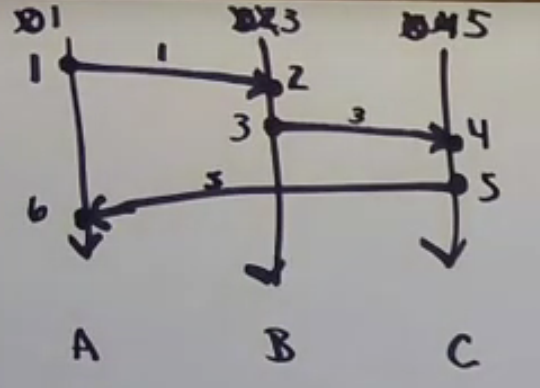 0 1 0 2 3 0 4 5
1 1 2
3 3 4
5 5
6
A B C